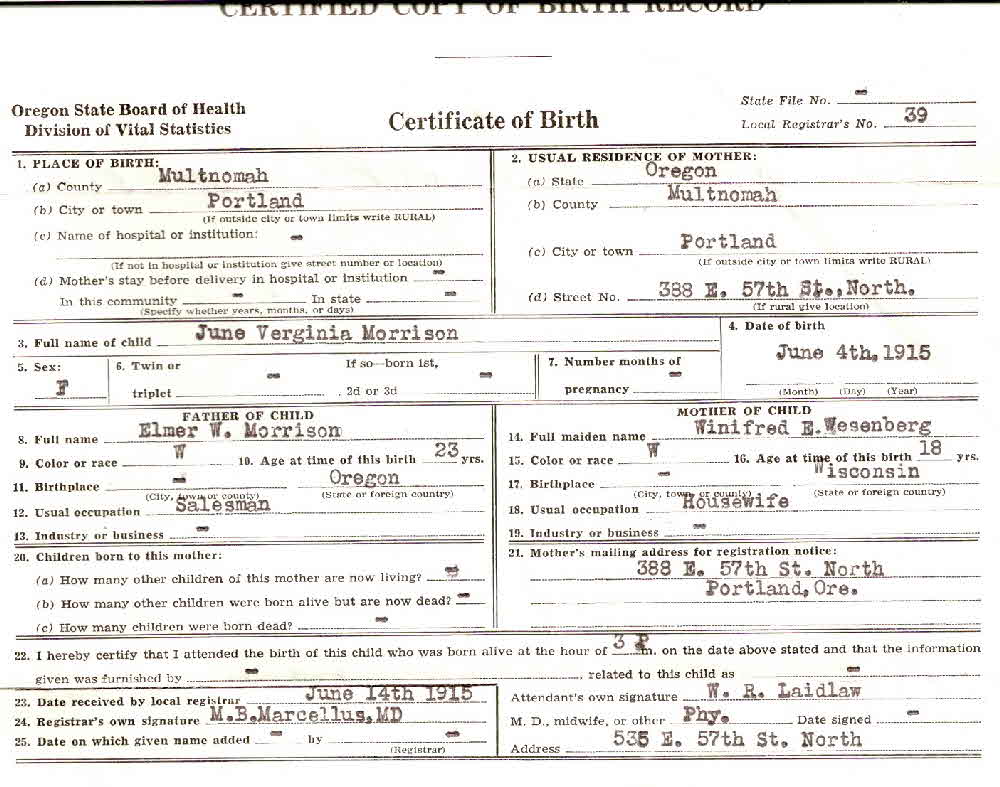 CERTIFIED COPY OF BIRTH RECORD
Oregon State Board of Health
Division of Vital Statistics
Certificate of Birth
State File No. -
Local Registrar's No. 39
1. PLACE OF BIRTH:
(a) County Multnomah
(b) City or town Portland
(If outside city or town limits write RURAL)
(c) Name of hospital or institution: -
(If not in hospital or institution give street number or location)
(d) Mother's stay before delivery in hospital or institution -
In this community - In state -
(Specify whether years, months, or days)
2. USUAL RESIDENCE OF MOTHER:
(a) State Oregon
(b) County Multnomah
(c) City or town Portland
(If outside city or town limits write RURAL)
(d) Street No. 388 E. 57th St., North.
(If rural give location)
3. Full name of child June Verginia Morrison
4. Date of birth
June 4th, 1915
(Month) (Day) (Year)
5. Sex:
F
6. Twin or
triplet -
If so—born 1st,
2d or 3d -
7. Number months of
pregnancy -
FATHER OF CHILD
8. Full name Elmer W. Morrison
9. Color or race W 10. Age at time of this birth 23 yrs.
11. Birthplace - Oregon
(City, town or county) (State or foreign country)
12. Usual occupation Salesman
13. Industry or business -
MOTHER OF CHILD
14. Full maiden name Winifred E. Wesenberg
15. Color or race W 16. Age at time of this birth 18 yrs.
17. Birthplace - Wisconsin
(City, town or county) (State or foreign country)
18. Usual occupation Housewife
19. Industry or business -
20. Children born to this mother:
(a) How many other children of this mother are now living? -
(b) How many other children were born alive but are now dead? -
(c) How many children were born dead? -
21. Mother's mailing address for registration notice:
388 E. 57th St. North
Portland, Ore.
22. I hereby certify that I attended the birth of this child who was born alive at the hour of 3 P m. on the date above stated and that the information
given was furnished by - , related to this child as -
23. Date received by local registrar June 14th 1915
24. Registrar's own signature M.B.Marcellus, MD
25. Date on which given name added - by -
(Registrar)
Attendant's own signature W. R. Laidlaw
M. D., midwife, or other Phy. Date signed -
Address 535 E. 57th St. North